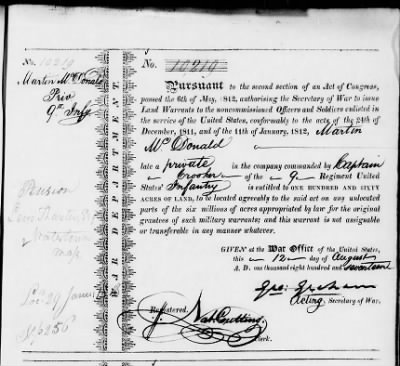 No. 10219
Martin McDonald
Priv
9th Infy
Pension
Mass
29
WAR DEPARTMENT
No. 10219
Pursuant to the second section of an Act of Congress,
passed the 6th of May, 1812, authorising the Secretary of War to issue
Land Warrants to the noncommissioned Officers and Soldiers enlisted in
the service of the United States, conformably to the acts of the 24th of
December, 1811, and of the 11th of January, 1812, Martin
McDonald
late a private in the company commanded by Captain
Crooker of the 9 Regiment United
States' Infantry is entitled to ONE HUNDRED AND SIXTY
ACRES OF LAND, to be located agreeably to the said act on any unlocated
parts of the six millions of acres appropriated by law for the original
grantees of such military warrants; and this warrant is not assignable
or transferable in any manner whatever.
GIVEN at the War Office of the United States,
this 12 day of August
A. D. one thousand eight hundred and seventeen
Geo: Graham
Acting Secretary of War.
Registered.
Nat Cutting
Clerk.